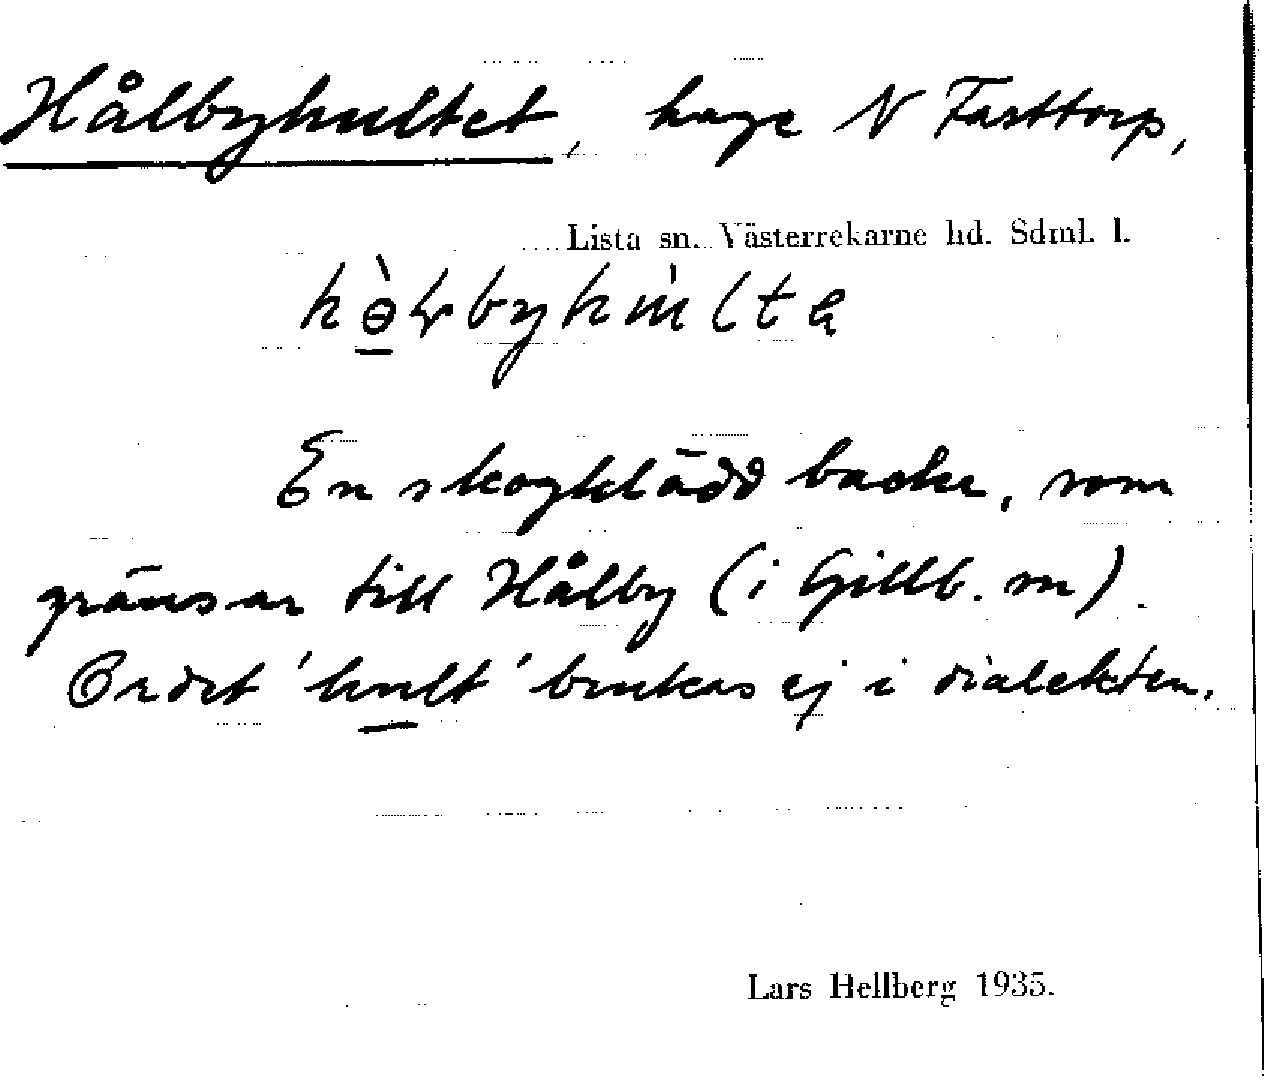 Hålbyhultet, hage N Fasttorp,
Lista sn. Västerrekarne hd. Sdml. l.
En skogklädd backe, som
gränsar till Hålby (i Gillb. sn).
Ordet 'hult' brukas ej i dialekten.
Lars Hellberg 1935.